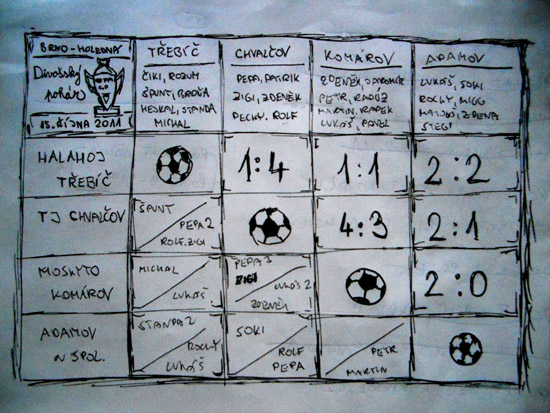 BRNO-HOLEDNÁ
Divošský
pohár
15. ŘÍJNA 2011
TŘEBÍČ
ČIKI, ROZUM
ŠPUNT, BROŇA
HESKAL, STANDA
MICHAL
CHVALČOV
PEPA, PATRIK
ZIGI, ZDENĚK
PECKY, ROLF
KOMÁROV
ZDENĚK, JAROMÍR
PETR, RADÚZ
MARTIN,
LUKÁŠ, PAVEL
ADAMOV
LUKÁŠ, SOKI
ROCKY, MIGG
ZDENA
STEGI
HALAHOJ
TŘEBÍČ
1:4
1:1
2:2
TJ CHVALČOV
ŠPUNT
PEPA 2
ROLF, ZIGI
4:3
2:1
MOSKYTO
KOMÁROV
MICHAL
LUKÁŠ
PEPA 3
ZIGI
LUKÁŠ 2
ZDENĚK
2:0
ADAMOV
N SPOL.
STANDA 2
ROCKY
LUKÁŠ
SOKI
ROLF
PEPA
PETR
MARTIN